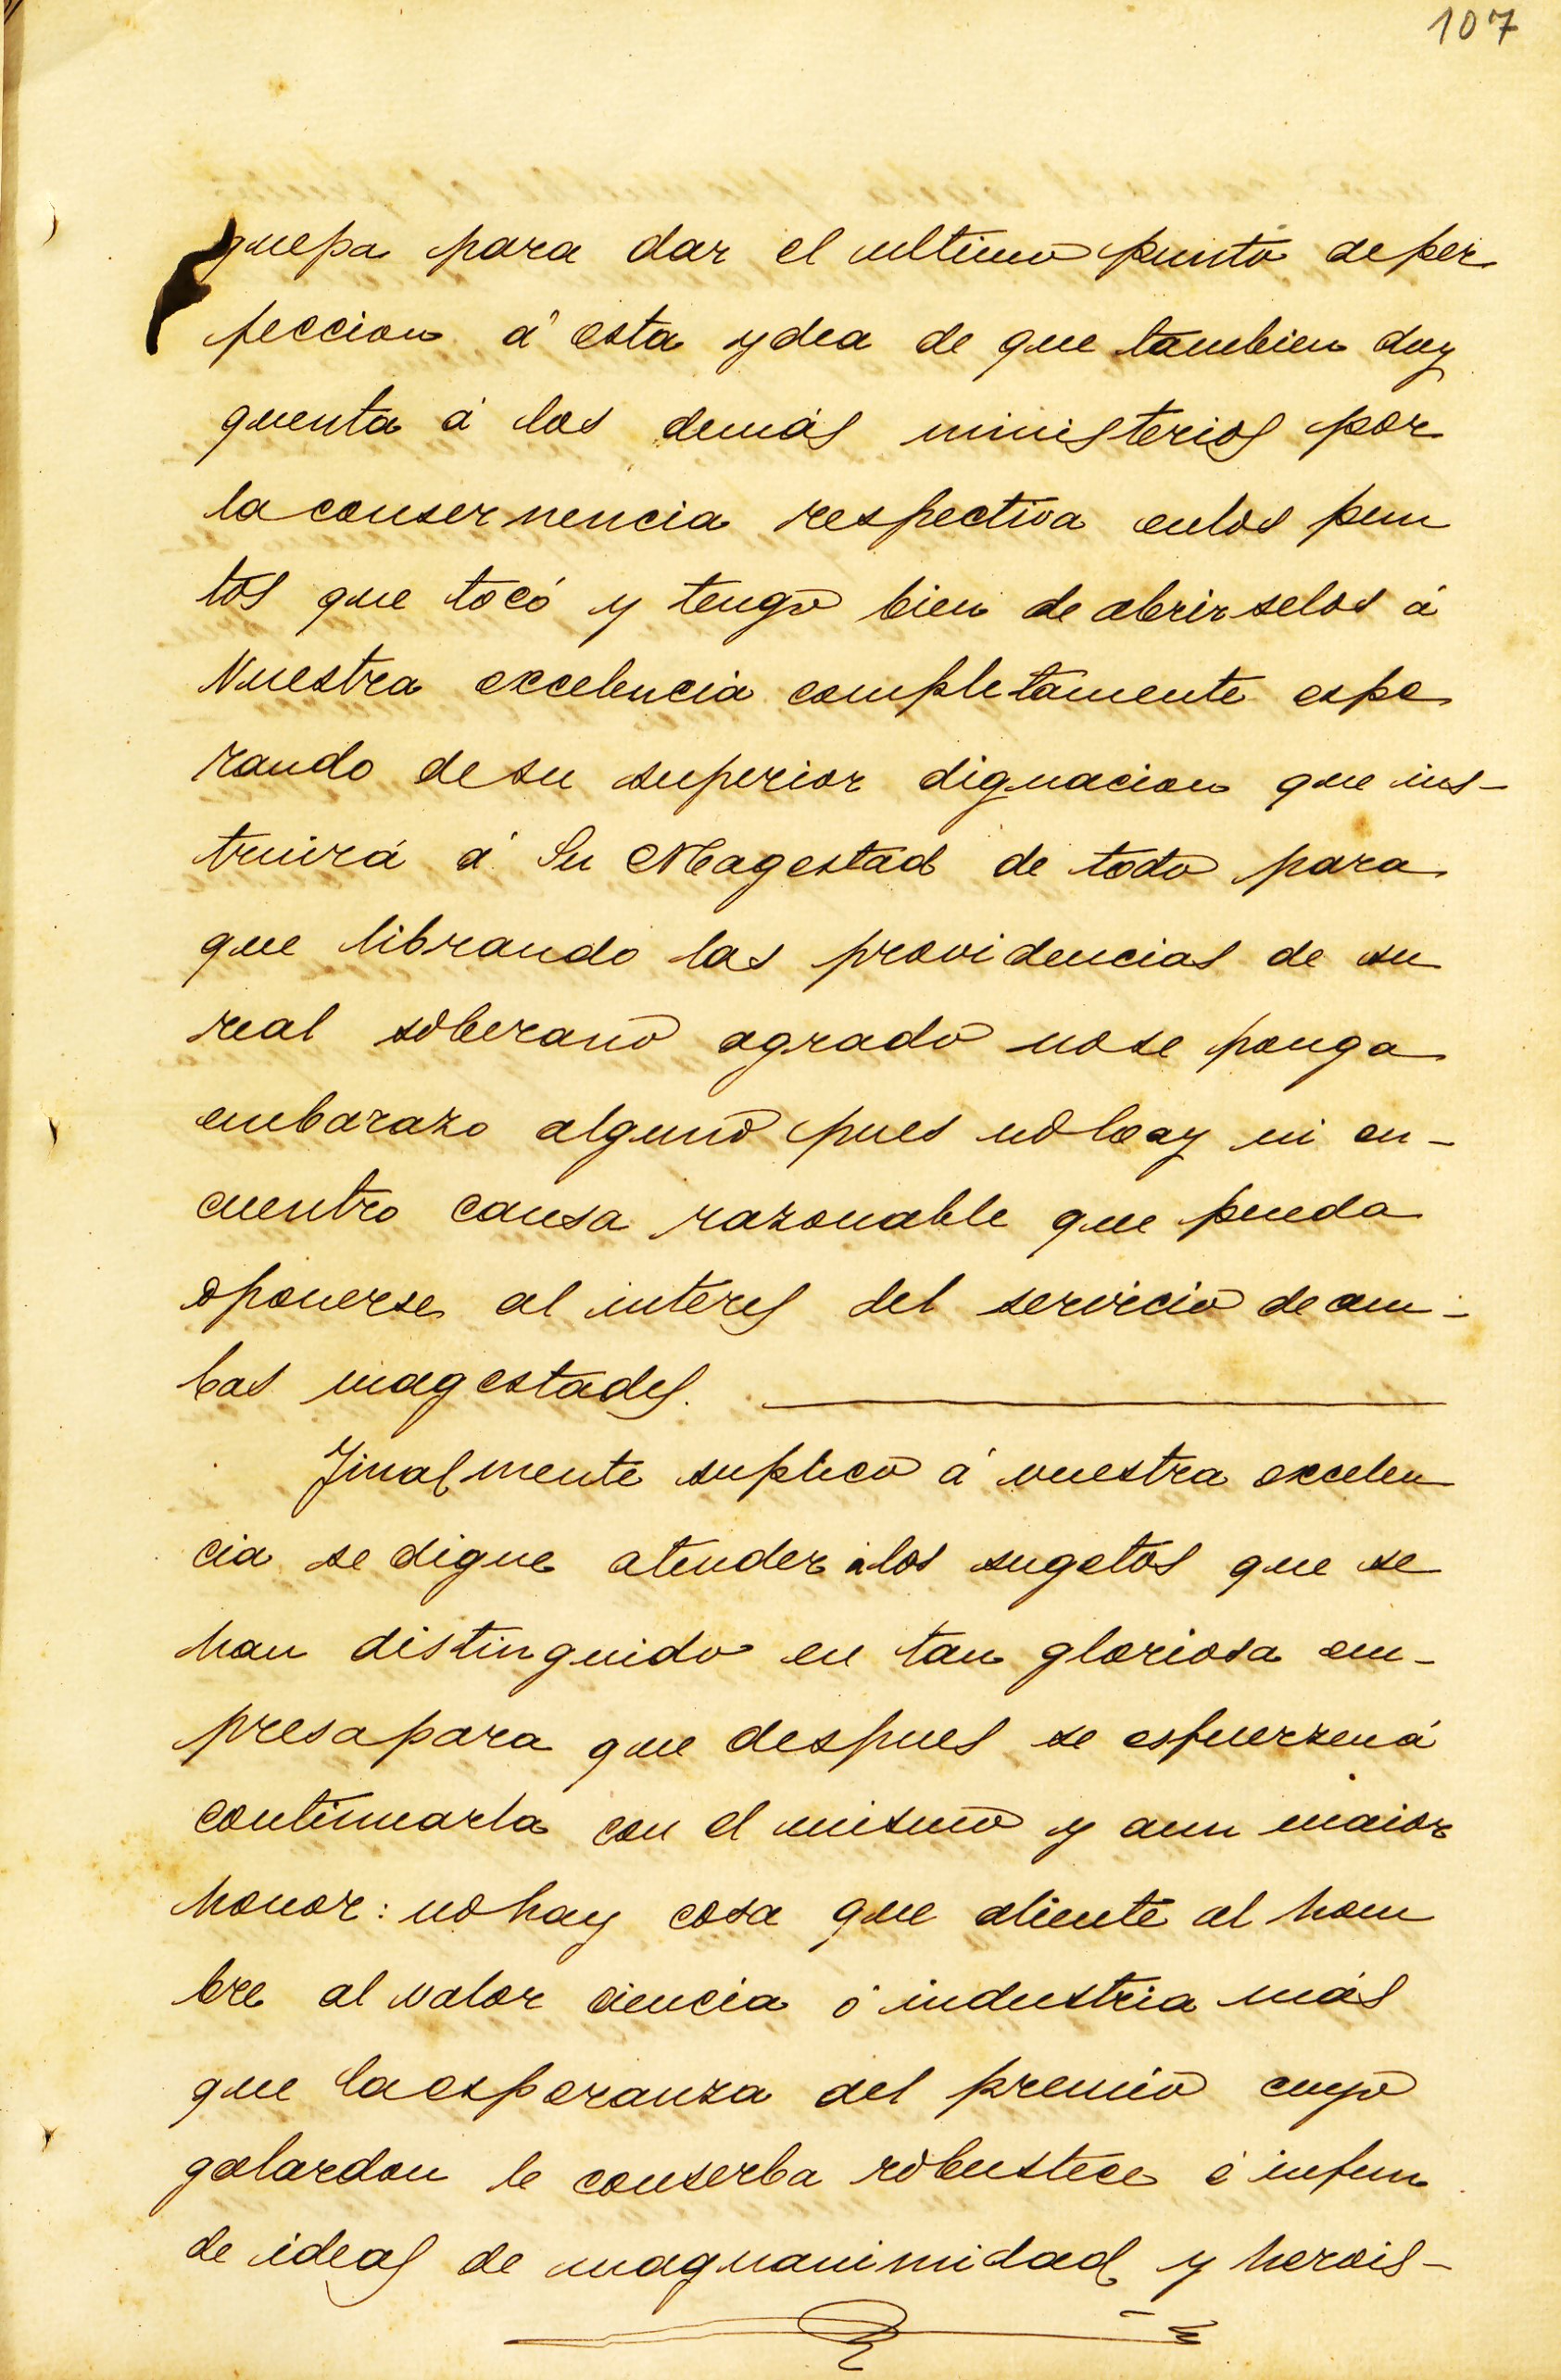 107
quepa para dar el ultimo punto de per
feccion á esta ydea de que tambien doy
quenta á los demás ministerios por
la consernencia respectiva enlos pun
tos que tocó y tengo bien de abrirselos á
Vuestra excelencia completamente espe
rando desu superior dignacion que ins-
truirá á Su Magestad de todo para
que librando las providencias de su
real soberano agrado nose ponga
embarazo alguno pues nolo ay ni en-
cuentro causa razonable que pueda
oponerse al interes del servicio de am-
bas magestades.
Finalmente suplico á vuestra excelen
cia se digne atender á los sugetos que se
han distinguido en tan gloriosa em-
presa para que despues se esfuerzen á
continuarla con el mismo y aun maior
honor: no hay cosa que aliente al hom
bre al valor ciencia ó industria más
que la esperanza del premio cuyo
galardon le conserba robustece é infun
de ideas de magnanimidad y herois-